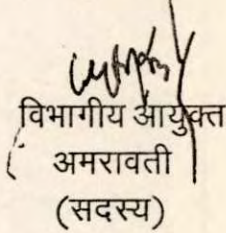 विभागीय आयुक्त
अमरावती
(सदस्य)